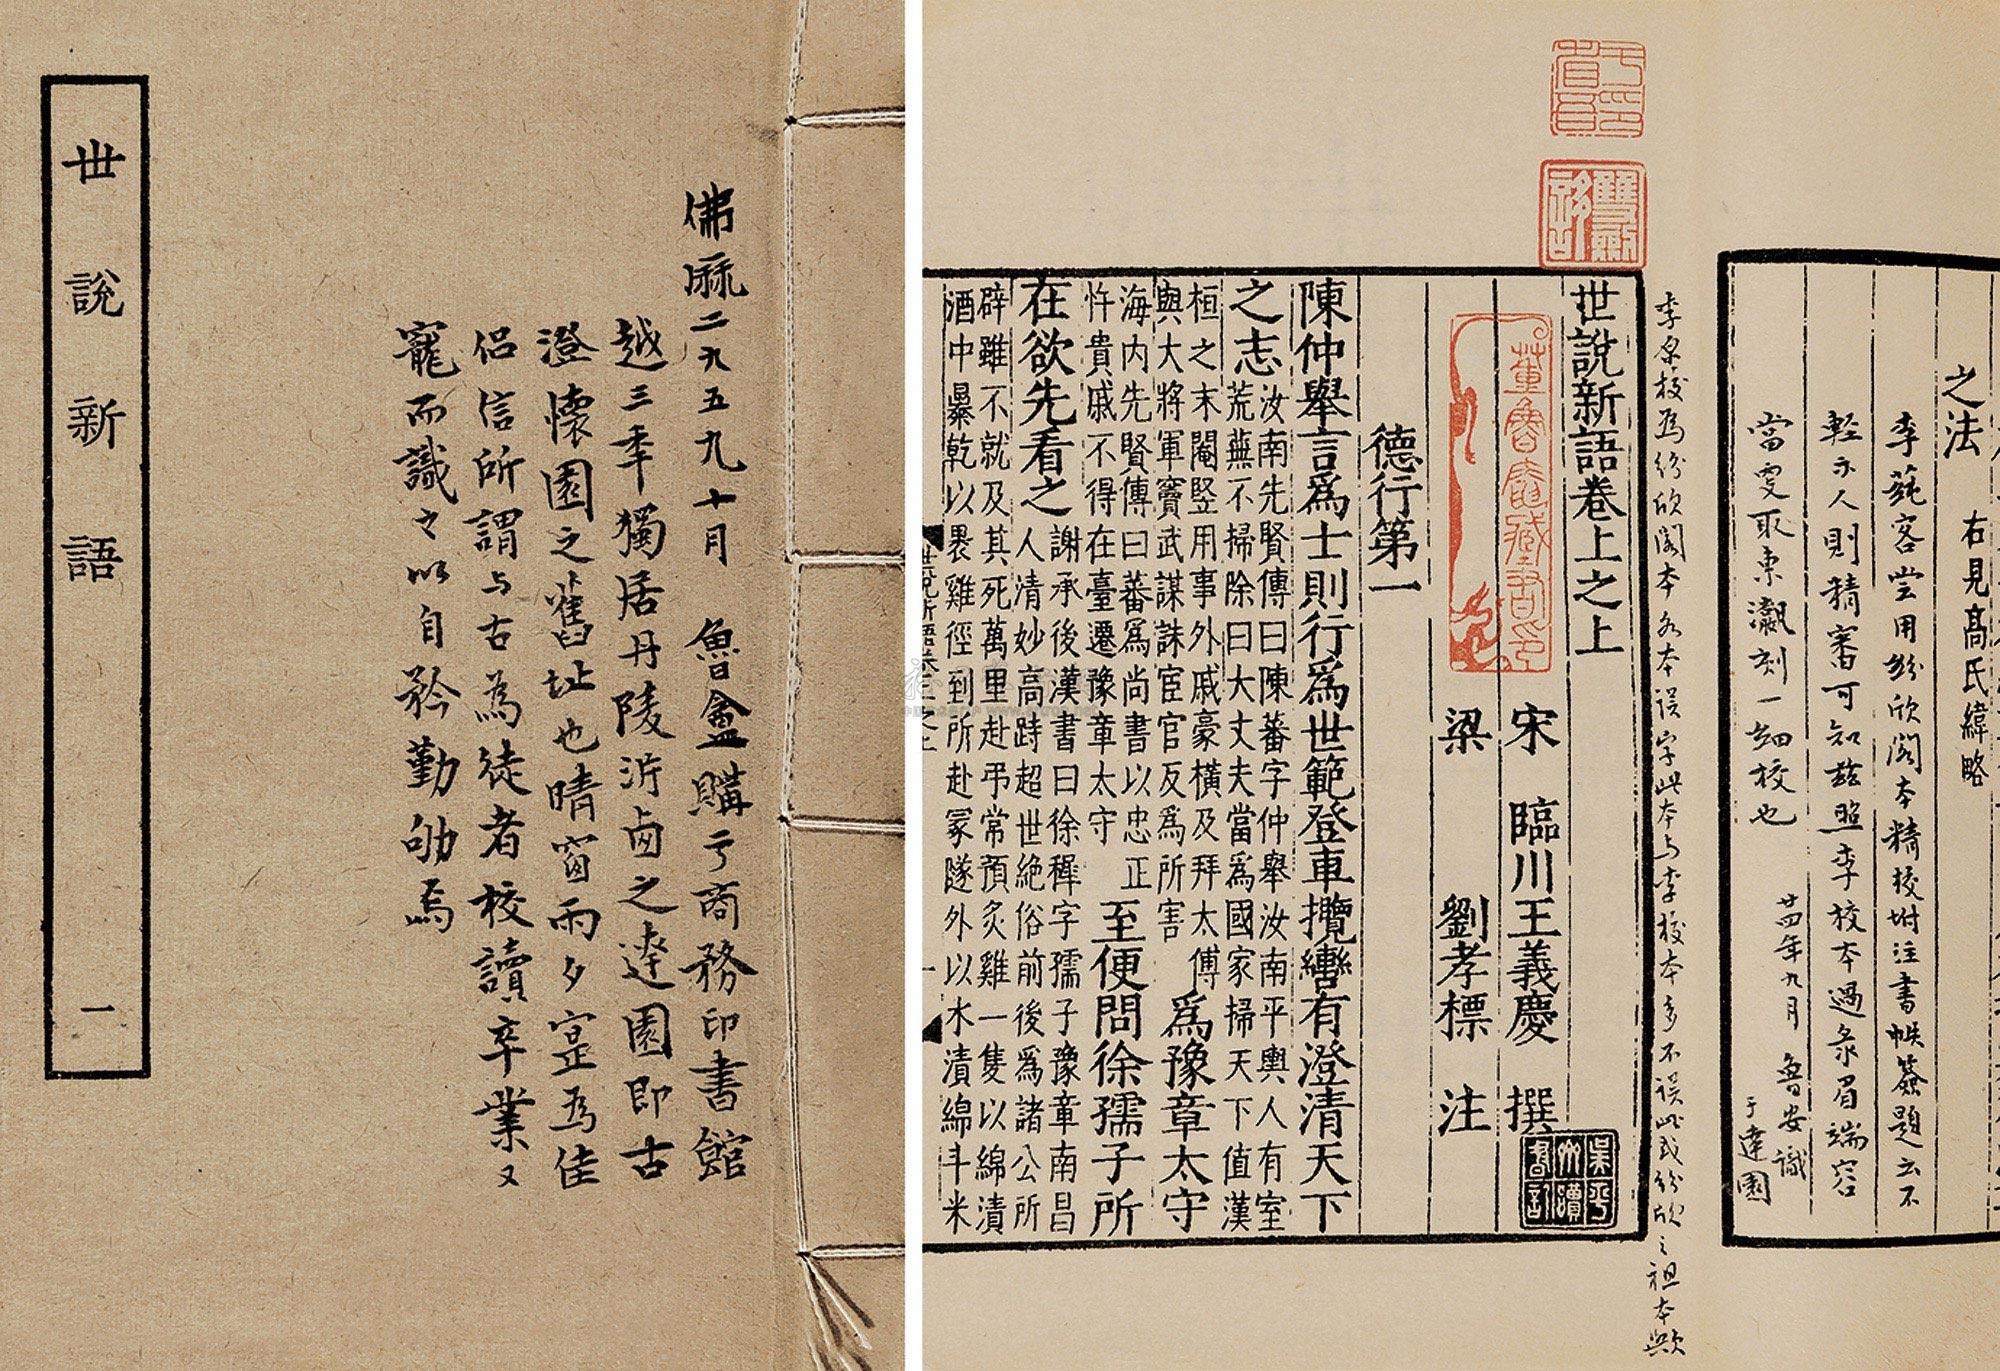 世說新語 一
佛厤二九五九十月 魯盦購于商務印書館
越三年獨居丹陵沜卤之達園即古
澄懷園之舊址也晴窗雨夕寔為佳
侶信所謂与古為徒者校讀卒業又
寵而識之以自矜勤劬焉
之法 右見高氏緯略
李蒓客嘗用紛欣閣本精校坿注書帙簽題云不
輕示人則精審可知茲照李校本過彔眉端容
當更取東瀛刻一細校也
廿四年九月 魯安識
于達園
李原校為紛欣閣本 各本誤字此本与李校本多不誤此或紛欣之祖本歟
雙劍
世說新語卷上之上
董魯盦臧書印
宋 臨川王義慶 撰
梁 劉孝標 注
德行第一
陳仲舉言爲士則行爲世範登車攬轡有澄清天下
之志
汝南先賢傳曰陳蕃字仲舉汝南平輿人有室
荒蕪不掃除曰大丈夫當爲國家掃天下值漢
桓之末閹豎用事外戚豪橫及拜太傅
與大將軍竇武謀誅宦官反爲所害
爲豫章太守
海內先賢傳曰蕃爲尚書以忠正
忤貴戚不得在臺遷豫章太守
至便問徐孺子所
在欲先看之
謝承後漢書曰徐穉字孺子豫章南昌
人清妙高跱超世絶俗前後爲諸公所
辟雖不就及其死萬里赴弔常預炙雞一隻以綿漬
酒中暴乾以裹雞徑到所赴冢隧外以水漬綿斗米
世說新語卷上之上 一